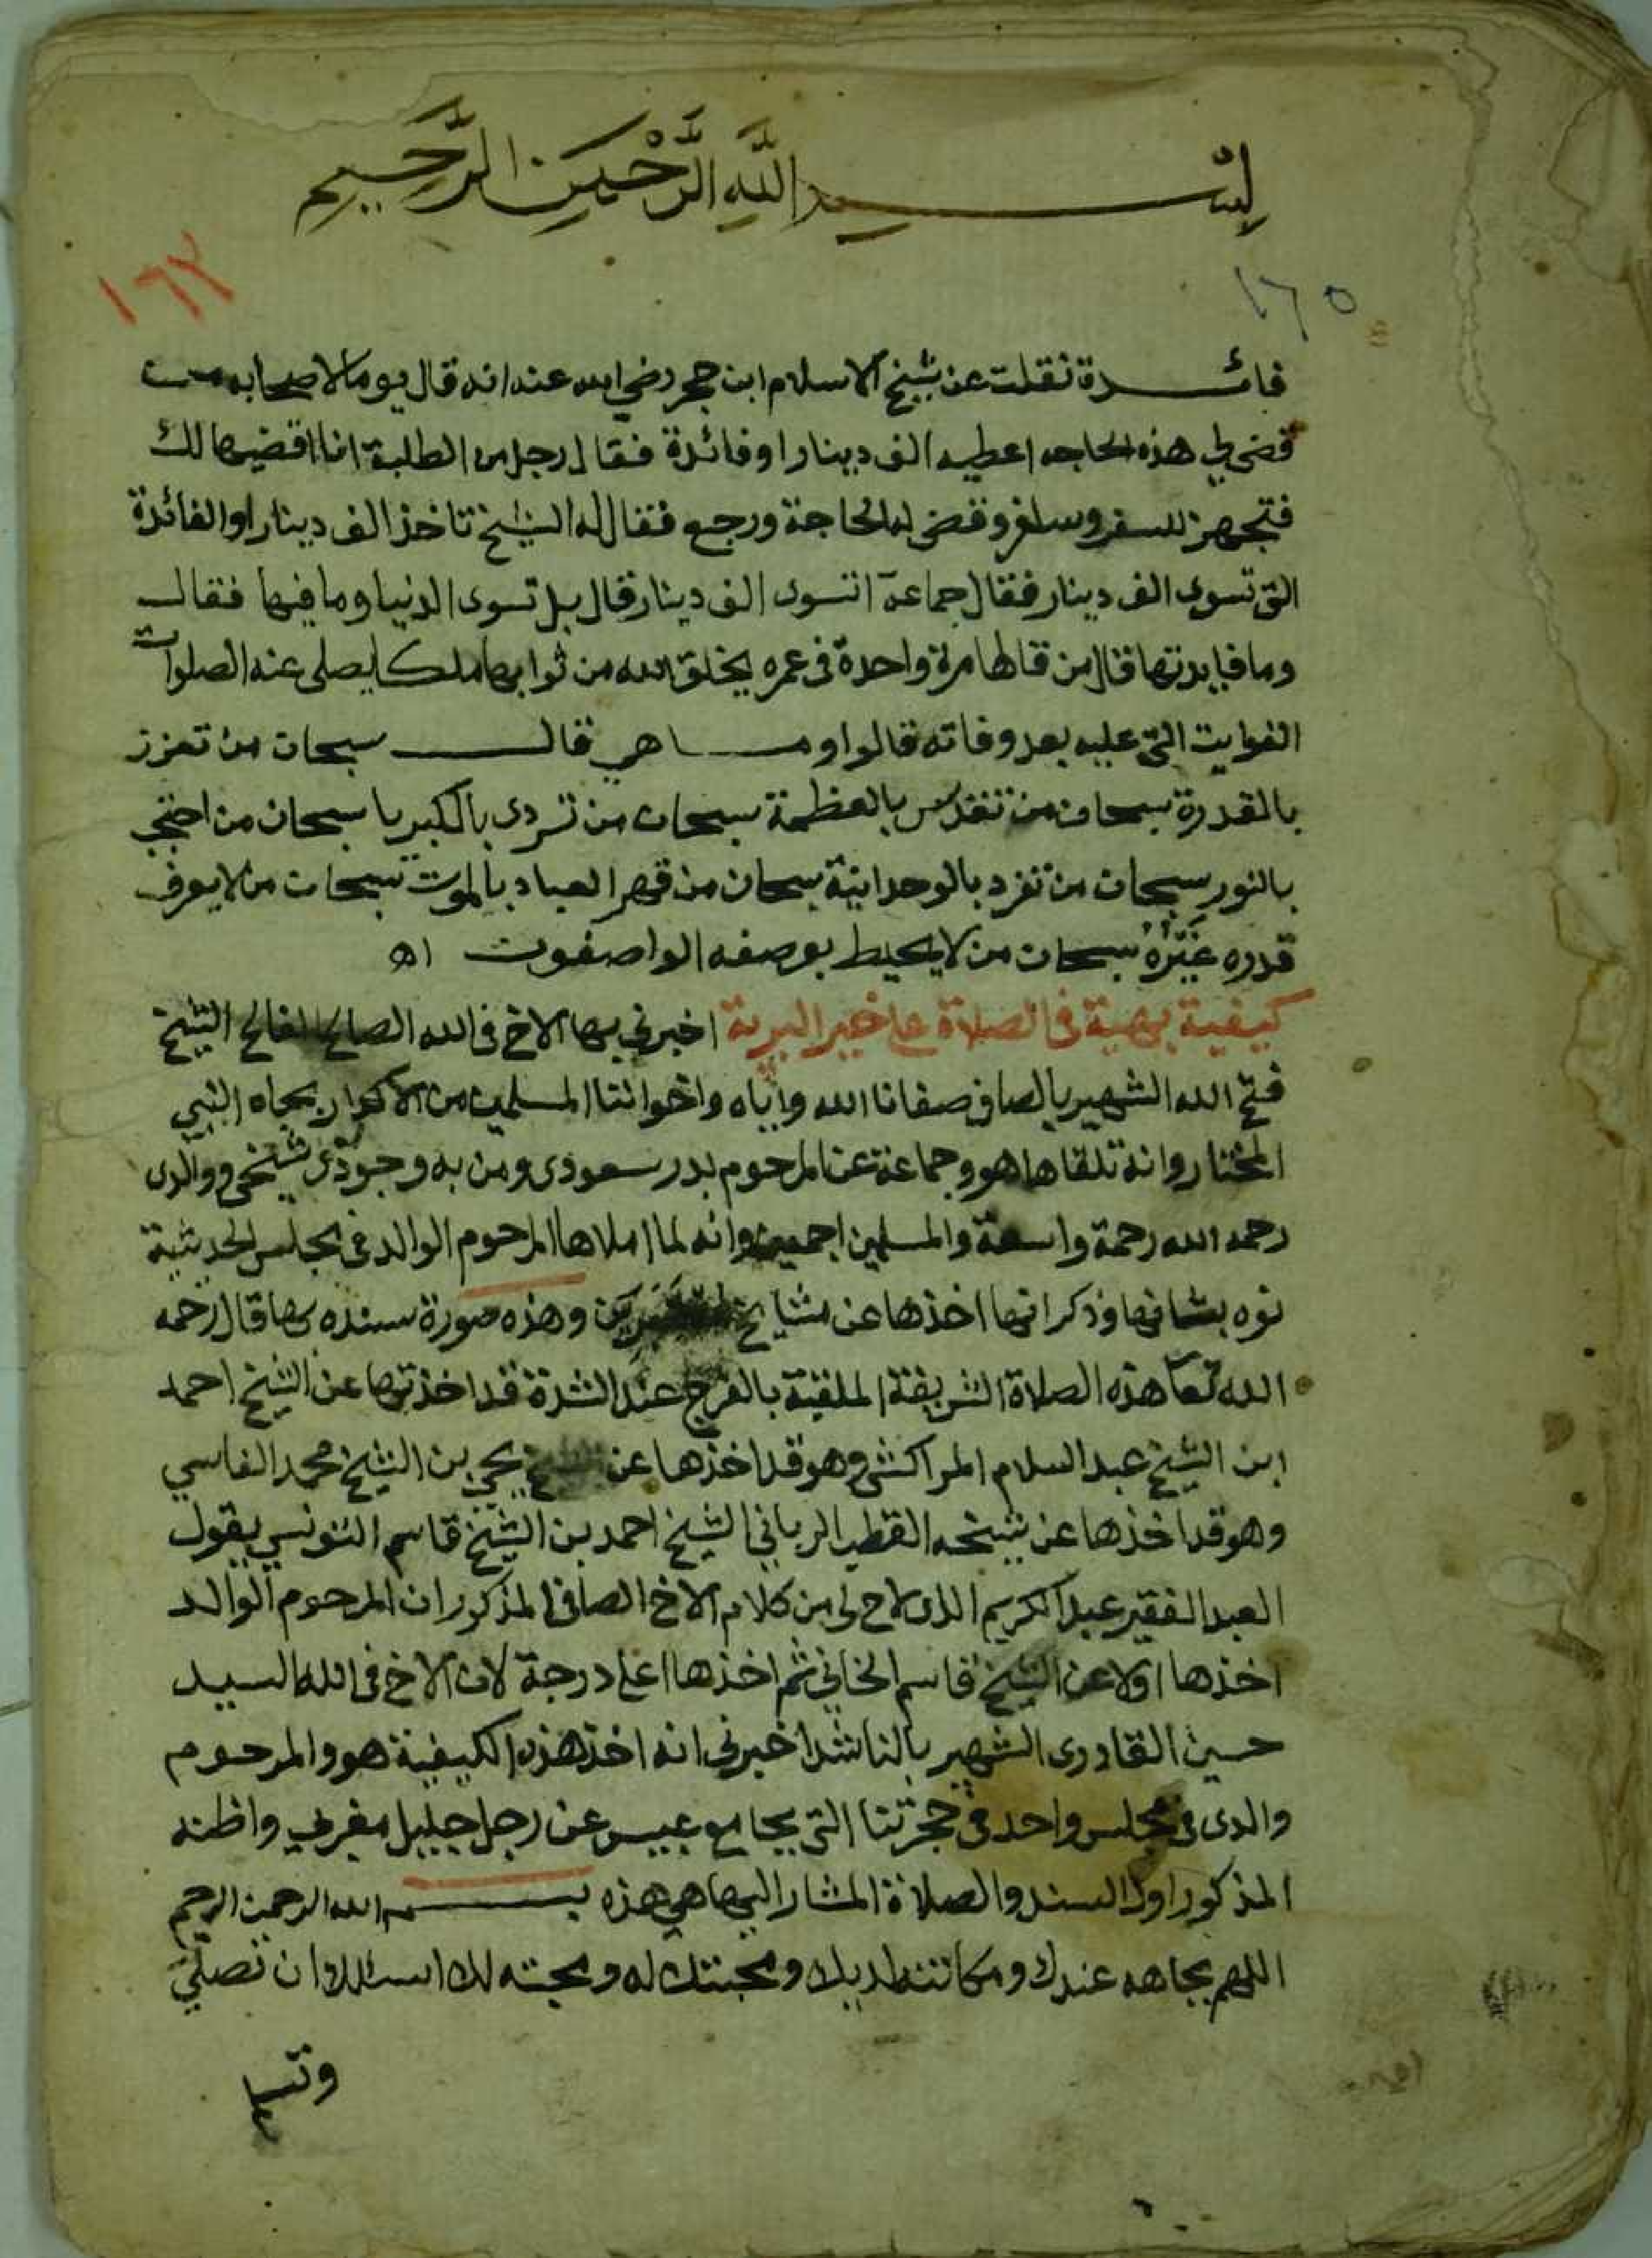 بسم الله الرحمن الرحيم
١٦٢
١٦٥
فائدة نقلت عن شيخ الاسلام ابن حجر رضي الله عنه انه قال يوما لاصحابه من
قضى لي هذه الحاجه اعطيه الف دينار او فائدة فقال رجل من الطلبة انا اقضيها لك
فتجهز للسفر وسافر وقضى له الحاجة ورجع فقال له الشيخ تاخذ الف دينار او الفائدة
التي تسوى الف دينار فقال جماعة اتسوى الف دينار قال بل تسوى الدنيا وما فيها فقال
وما فايدتها قال من قالها مرة واحدة في عمره يخلق الله من ثوابها ملكا يصلى عنه الصلوات
الفوايت التي عليه بعد وفاته قالوا وما هي قال سبحان من تعزز
بالقدرة سبحان من تقدس بالعظمة سبحان من تردى بالكبريا سبحان من احتجب
بالنور سبحان من تفرد بالوحدانية سبحان من قهر العباد بالموت سبحان من لا يعرف
قدره غيره سبحان من لا يحيط بوصفه الواصفون اه
كيفية بهية في الصلاة على خير البرية اخبرني بها الاخ في الله الصالح الفالح الشيخ
فتح الله الشهير بالصافي صفانا الله واياه واخواننا المسلمين من الاكدار بجاه النبي
المختار وانه تلقاها هو وجماعة عن المرحوم بدر سعودى ومن به وجودى شيخي ووالدى
رحمه الله رحمة واسعة والمسلمين اجمعين وانه لما املاها المرحوم الوالد في المجلس الحديثية
نوه بشانها وذكر انها اخذها عن مشايخ وهذه صورة سنده بها قال رحمه
الله تعا هذه الصلاة الشريفة الملقبة بالفرج عند الشدة قد اخذتها عن الشيخ احمد
ابن الشيخ عبد السلام المراكشي وهو قد اخذها عن يحيى بن الشيخ محمد الفاسي
وهو قد اخذها عن شيخه القطب الرباني الشيخ احمد بن الشيخ قاسم التونسي يقول
العبد الفقير عبد الكريم الذى لاح لي من كلام الاخ الصافي المذكور ان المرحوم الوالد
اخذها اولا عن الشيخ قاسم الخاني ثم اخذها اعلى درجة لان الاخ في الله السيد
حسين القادرى الشهير بالناشد اخبرني انه اخذ هذه الكيفية هو والمرحوم
والدى في مجلس واحد في حجرتنا التي بجامع عيسى عن رجل جليل مغربي واظنه
المذكور اول السند والصلاة المشار اليها هي هذه بسم الله الرحمن الرحيم
اللهم بجاهه عندك ومكانته لديك ومحبتك له ومحبته لك اسئلك ان تصلي
وتسلم